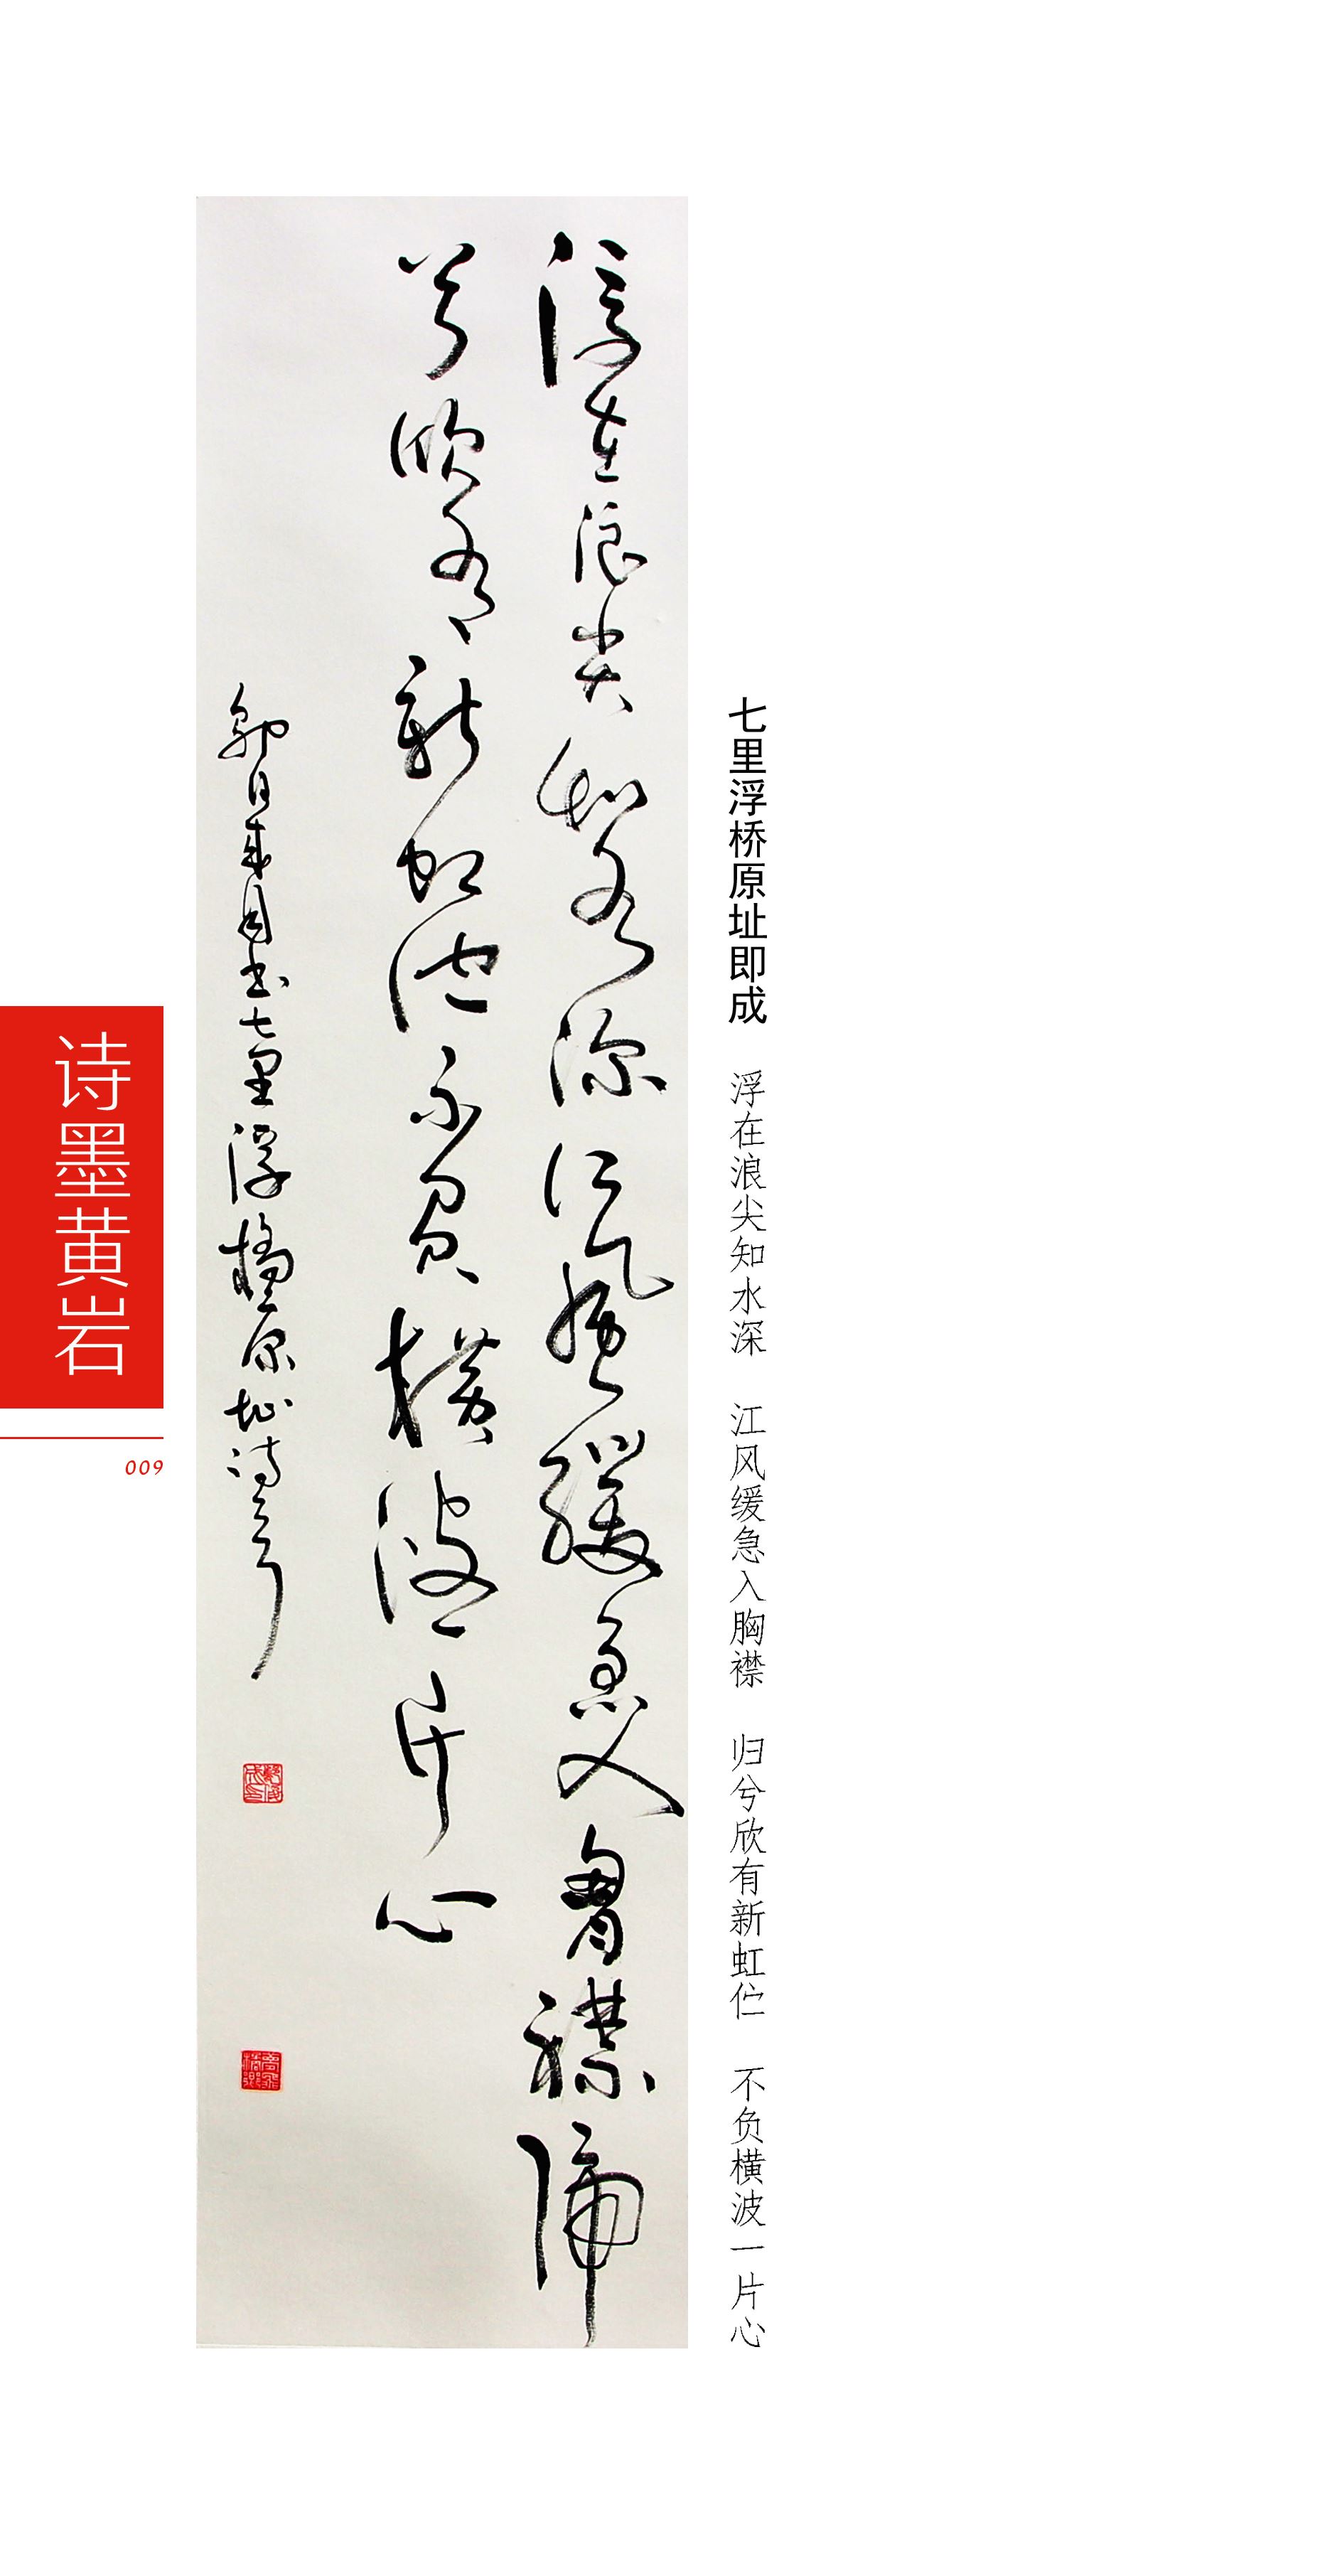 七里浮桥原址即成 浮在浪尖知水深 江风缓急入胸襟 归兮欣有新虹伫 不负横波一片心
浮在浪尖知水深江風緩急入胷襟歸
兮欣有新虹伫不負橫波一片心
书七里浮橋原址詩
诗墨黄岩
009